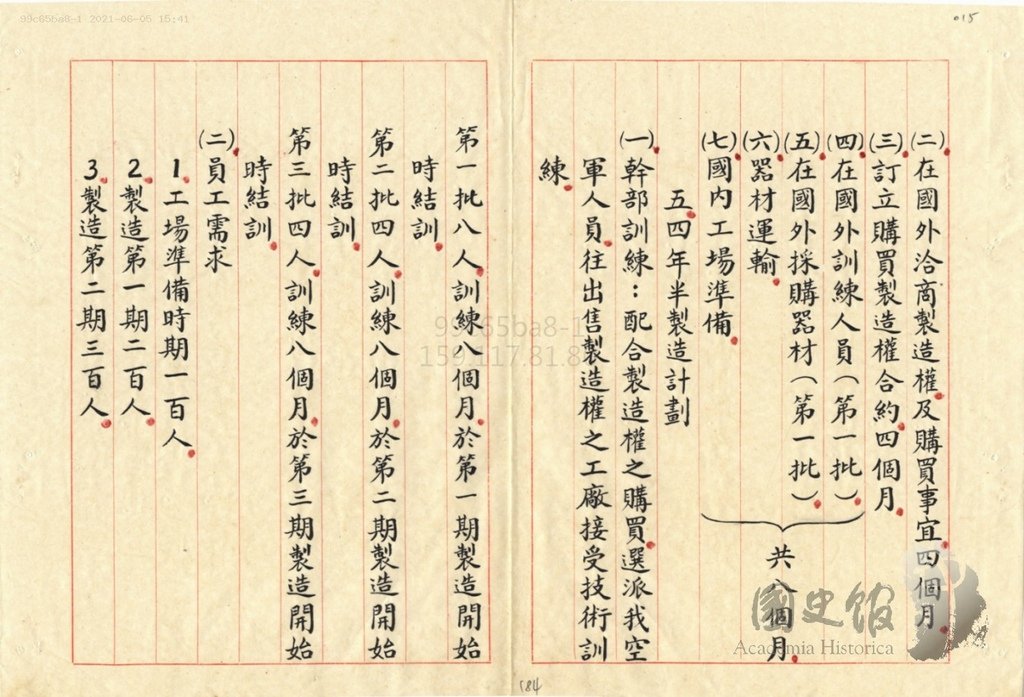 99c65ba8-1 2021-06-05 15:41
015
(二)在國外洽商製造權及購買事宜四個月
(三)訂立購買製造權合約四個月
(四)在國外訓練人員(第一批)
(五)在國外採購器材(第一批)
(六)器材運輸
(七)國內工場準備
共八個月
五四年半製造計劃
(一)幹部訓練：配合製造權之購買選派我空
軍人員往出售製造權之工廠接受技術訓
練
第一批八人訓練八個月於第一期製造開始
時結訓
第二批四人訓練八個月於第二期製造開始
時結訓
第三批四人訓練八個月於第三期製造開始
時結訓
(二)員工需求
1.工場準備時期一百人
2.製造第一期二百人
3.製造第二期三百人
99c65ba8-1
159.117.81.8
國史館
Academia Historica
184